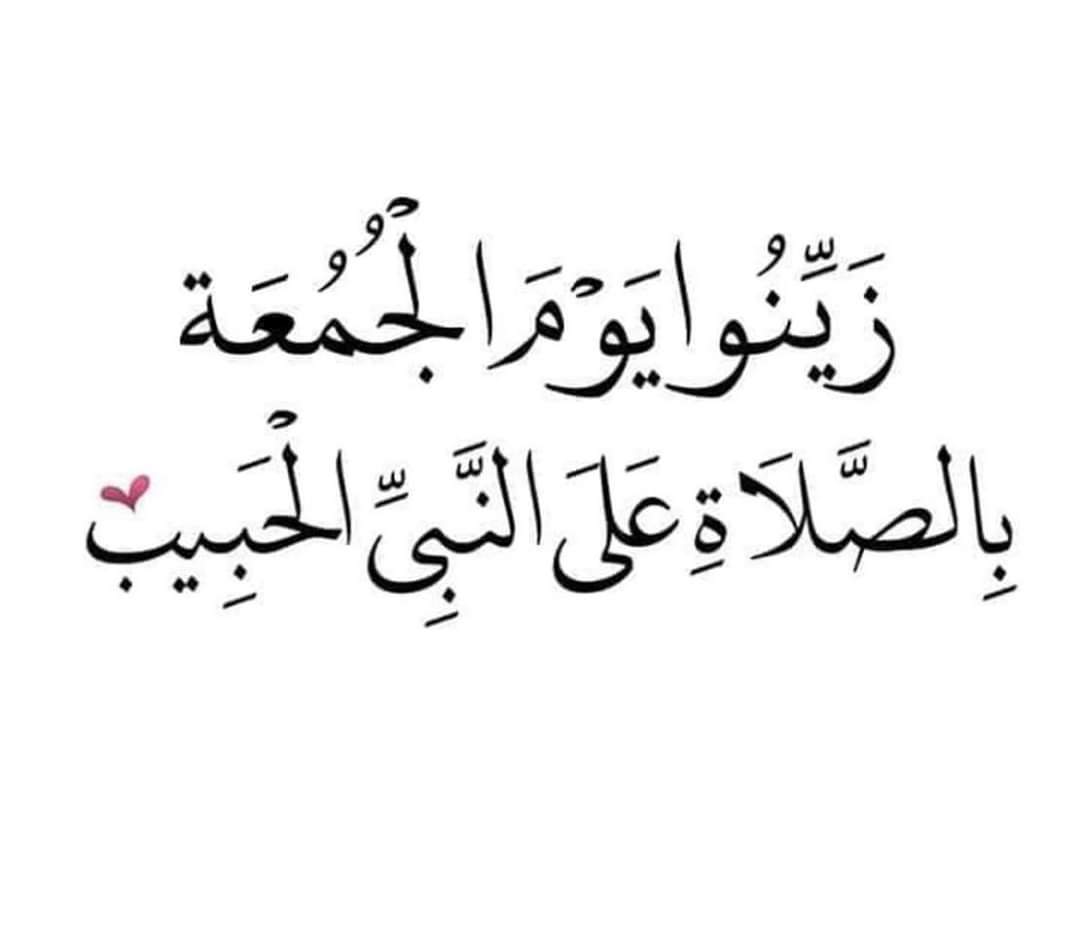 زَيِّنُوا يَوْمَ الْجُمُعَة
بِالصَّلَاةِ عَلَى النَّبِيِّ الْحَبِيب